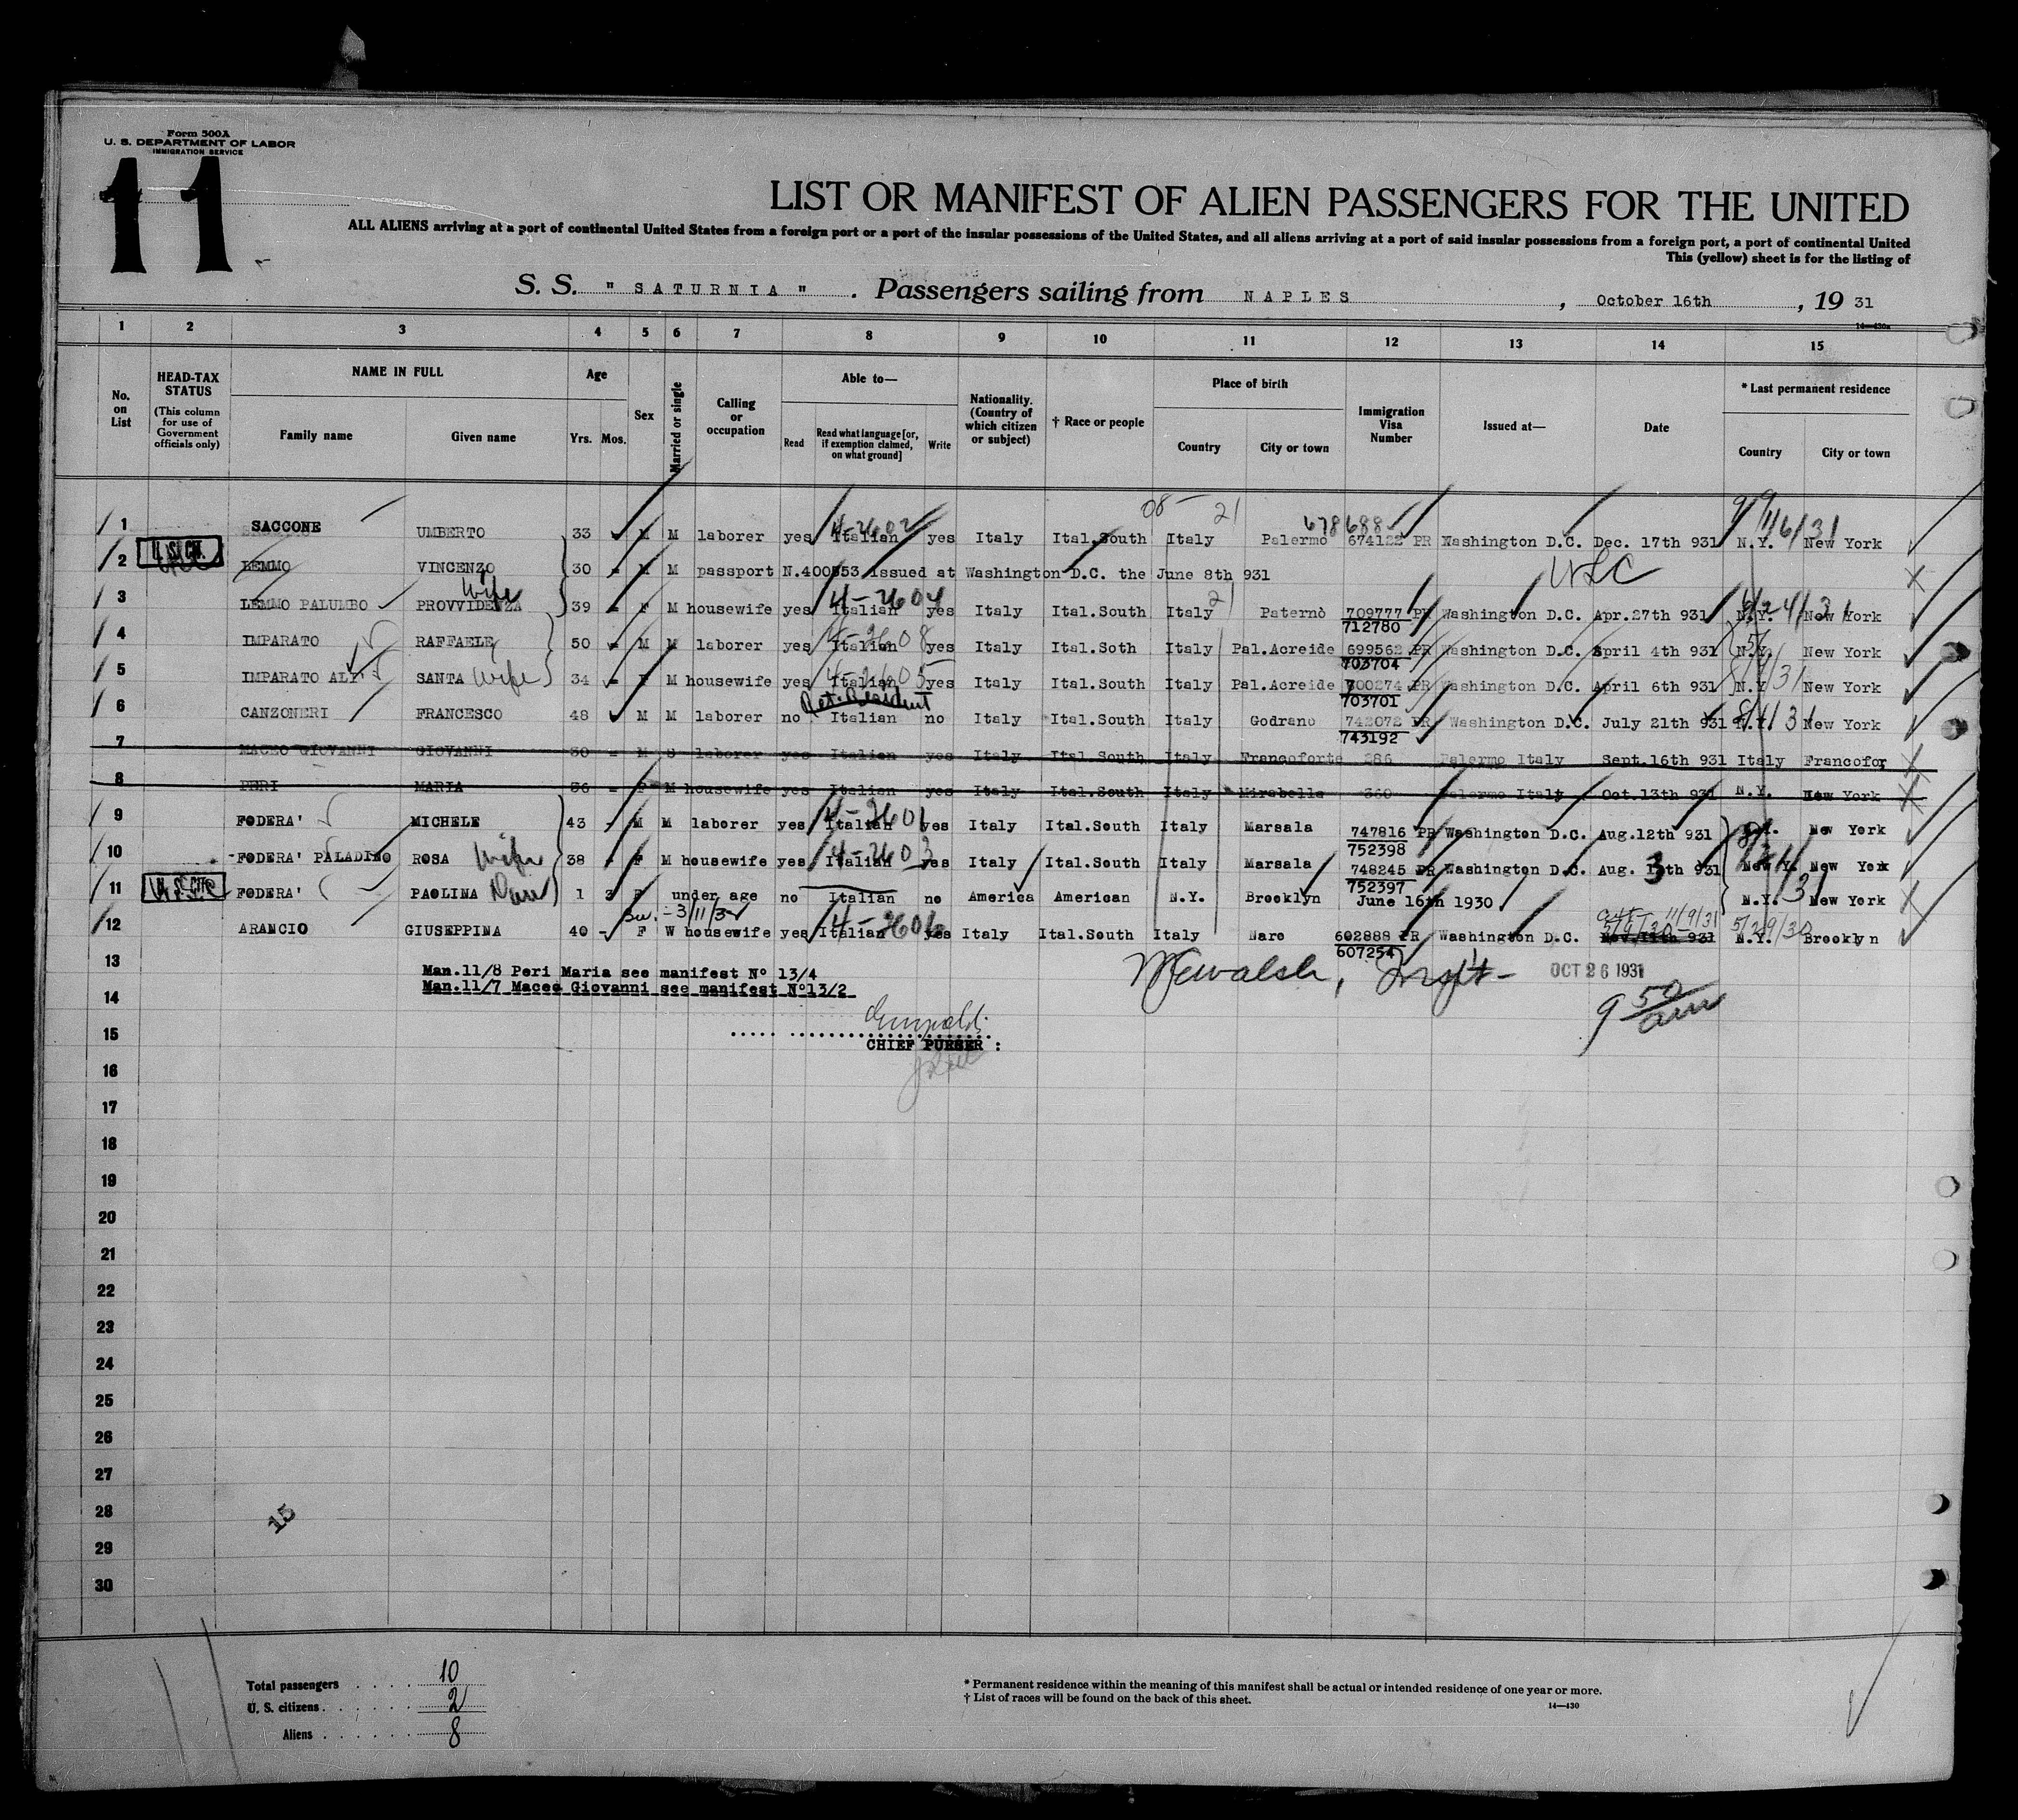 Form 500A
U. S. DEPARTMENT OF LABOR
IMMIGRATION SERVICE
11
LIST OR MANIFEST OF ALIEN PASSENGERS FOR THE UNITED
ALL ALIENS arriving at a port of continental United States from a foreign port or a port of the insular possessions of the United States, and all aliens arriving at a port of said insular possessions from a foreign port, a port of continental United
This (yellow) sheet is for the listing of
S. S. " SATURNIA " . Passengers sailing from NAPLES , October 16th , 19 31
14—430a
1 2 3 4 5 6 7 8 9 10 11 12 13 14 15
No. on List
HEAD-TAX STATUS (This column for use of Government officials only)
NAME IN FULL Family name Given name
Age Yrs. Mos.
Sex
Married or single
Calling or occupation
Able to— Read Read what language [or, if exemption claimed, on what ground] Write
Nationality. (Country of which citizen or subject)
† Race or people
Place of birth Country City or town
Immigration Visa Number
Issued at—
Date
* Last permanent residence Country City or town
08 21 678688 9/16/31
1 SACCONE UMBERTO 33 M M laborer yes Italian 4-2602 yes Italy Ital.South Italy Palermo 674122 PR Washington D.C. Dec. 17th 931 N.Y. New York
2 U.S. CIT. LEMMO VINCENZO 30 - M M passport N.400553 issued at Washington D.C. the June 8th 931
3 LEMMO PALUMBO PROVVIDENZA Wife 39 - F M housewife yes Italian 4-2604 yes Italy Ital.South Italy 21 Paternò 709777 PR Washington D.C. Apr.27th 931 N.Y. New York
712780
4 IMPARATO RAFFAELE 50 - M M laborer yes Italian 4-2608 yes Italy Ital.Soth Italy Pal.Acreide 699562 PR Washington D.C. April 4th 931 N.Y. New York
703704
5 IMPARATO ALI' SANTA Wife 34 - F M housewife yes Italian 4-2605 yes Italy Ital.South Italy Pal.Acreide 700274 PR Washington D.C. April 6th 931 N.Y. New York
703701
6 CANZONERI FRANCESCO 48 M M laborer no Ret. Resident Italian no Italy Ital.South Italy Godrano 742072 PR Washington D.C. July 21th 931 N.Y. New York
743192
7 MACEO GIOVANNI GIOVANNI 30 - M S laborer yes Italian yes Italy Ital.South Italy Francoforte 286 Palermo Italy Sept.16th 931 Italy Francofor
8 PERI MARIA 36 - F M housewife yes Italian yes Italy Ital.South Italy Mirabella 360 Palermo Italy Oct.13th 931 N.Y. New York
9 FODERA' MICHELE 43 - M M laborer yes Italian 4-2601 yes Italy Ital.South Italy Marsala 747816 PR Washington D.C. Aug.12th 931 New York
752398
10 FODERA' PALADINO ROSA Wife 38 - F M housewife yes Italian 4-2603 yes Italy Ital.South Italy Marsala 748245 PR Washington D.C. Aug. 13th 931 New Y. New York
752397
11 U.S. CIT. FODERA' PAOLINA Dau 1 3 F under age no Italian no America American N.Y. Brooklyn June 16th 1930 N.Y. New York
3/11/32 11/9/31
12 ARANCIO GIUSEPPINA 40 - F W housewife yes Italian 4-2606 yes Italy Ital.South Italy Naro 602888 PR Washington D.C. Nov.11th 931 5/29/30 N.Y. Brooklyn
607254
13 Man.11/8 Peri Maria see manifest Nº 13/4
Man.11/7 Maceo Giovanni see manifest Nº13/2
OCT 26 1931
9 50 am
14
15
CHIEF PURSER :
16
17
18
19
20
21
22
23
24
25
26
27
28
15
29
30
Total passengers . . . . 10
U. S. citizens . . . . . . 2
Aliens . . . . . . 8
* Permanent residence within the meaning of this manifest shall be actual or intended residence of one year or more.
† List of races will be found on the back of this sheet.
14—430